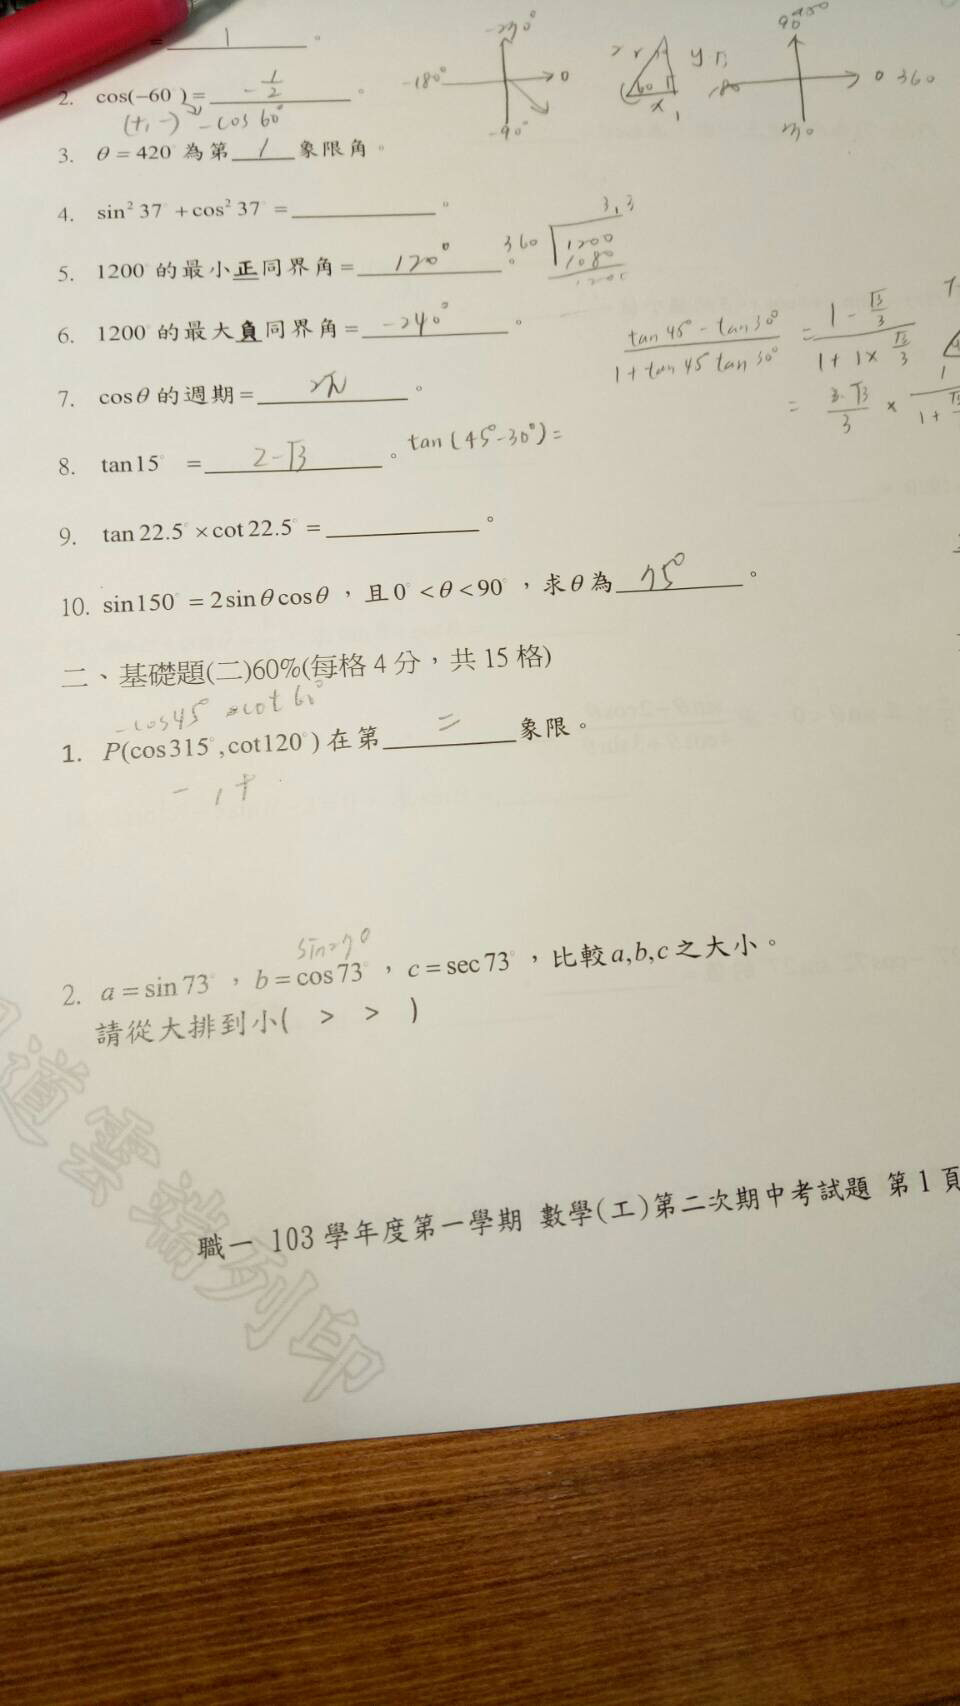 = 1 。
-270°
-180° 0
-90°
2 r y √3
60
x 1
90 450
180 0 360
270
2. cos(-60°) = -1/2 。
(+, -) -cos 60°
3. θ = 420° 為第 1 象限角。
4. sin² 37° + cos² 37° = ______ 。
5. 1200° 的最小正同界角 = 120° 。
3,3
360 1200
1080
6. 1200° 的最大負同界角 = -240° 。
(tan 45° - tan 30°)/(1 + tan 45 tan 30°) = (1 - √3/3)/(1 + 1× √3/3)
= (3-√3)/3 ×
7. cosθ 的週期 = 2π 。
8. tan15° = 2-√3 。 tan (45°-30°) =
9. tan 22.5° ×cot 22.5° = ______ 。
10. sin150° = 2sinθcosθ，且0° <θ<90°，求θ為 75° 。
二、基礎題(二)60%(每格 4 分，共 15 格)
-cos45° cot 60°
1. P(cos315°,cot120°) 在第 二 象限。
- , +
sin270
2. a = sin73°，b = cos73°，c = sec73°，比較a,b,c之大小。
請從大排到小( > > )
道雲端列印
職一 103 學年度第一學期 數學(工)第二次期中考試題 第 1 頁